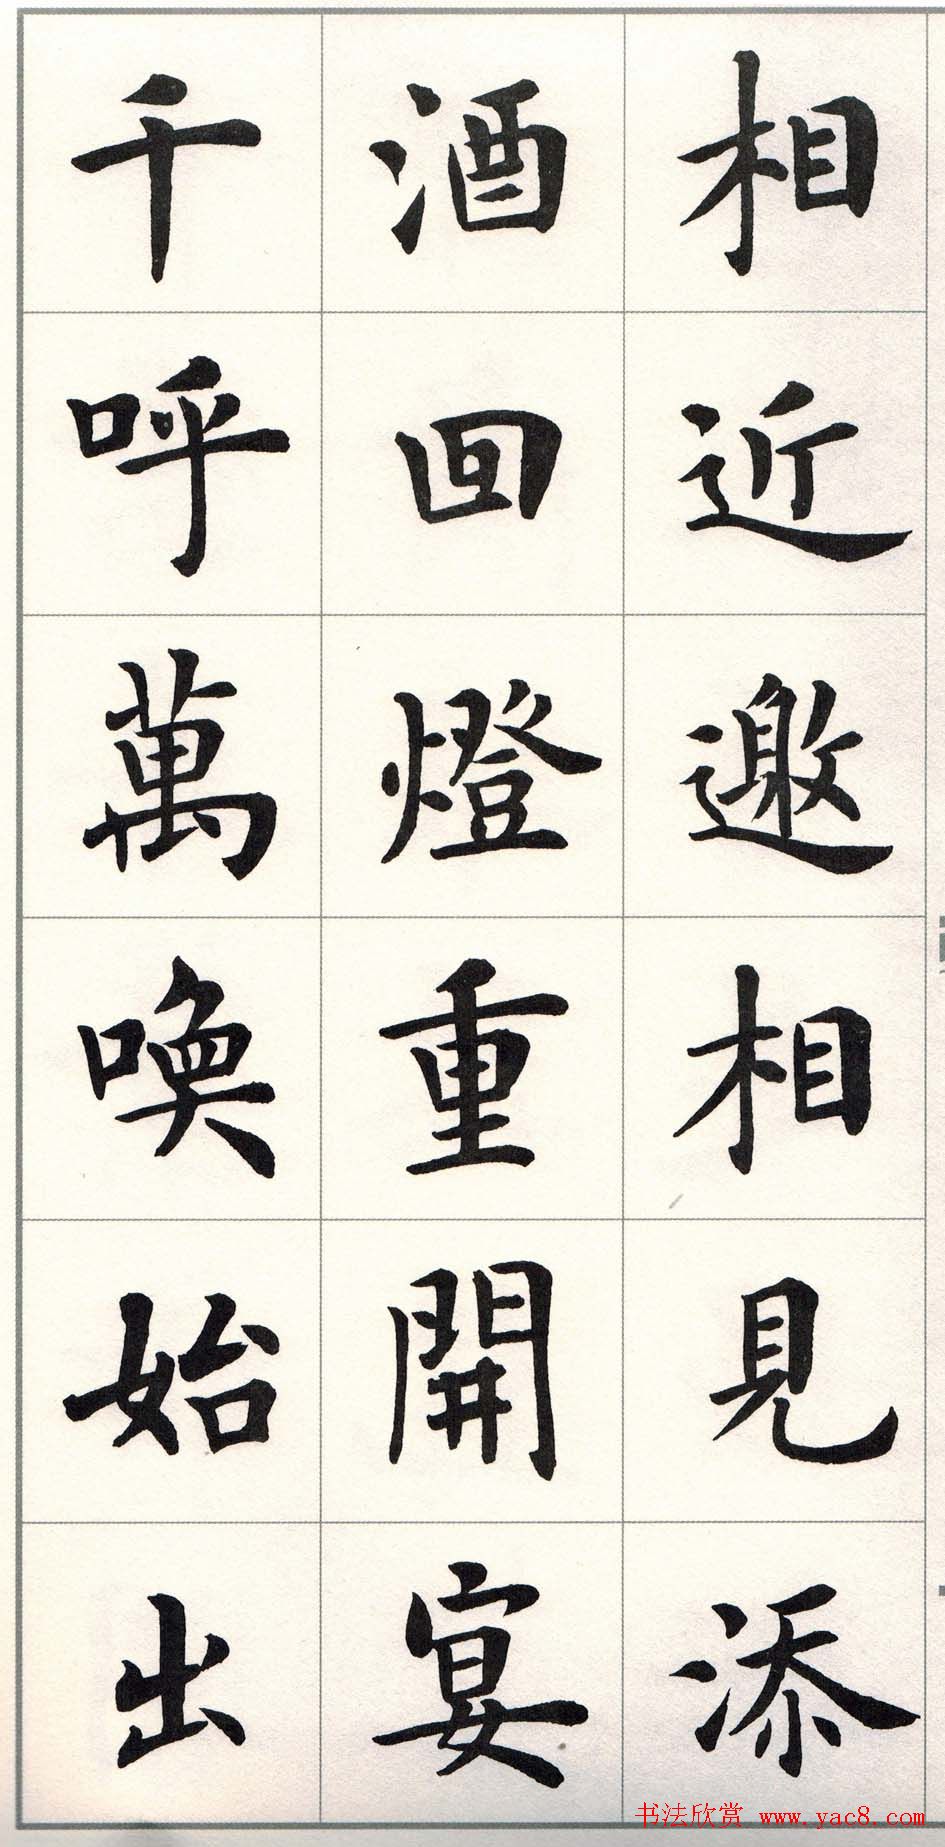 相近邀相見添
酒回燈重開宴
千呼萬喚始出
书法欣赏 www.yac8.com